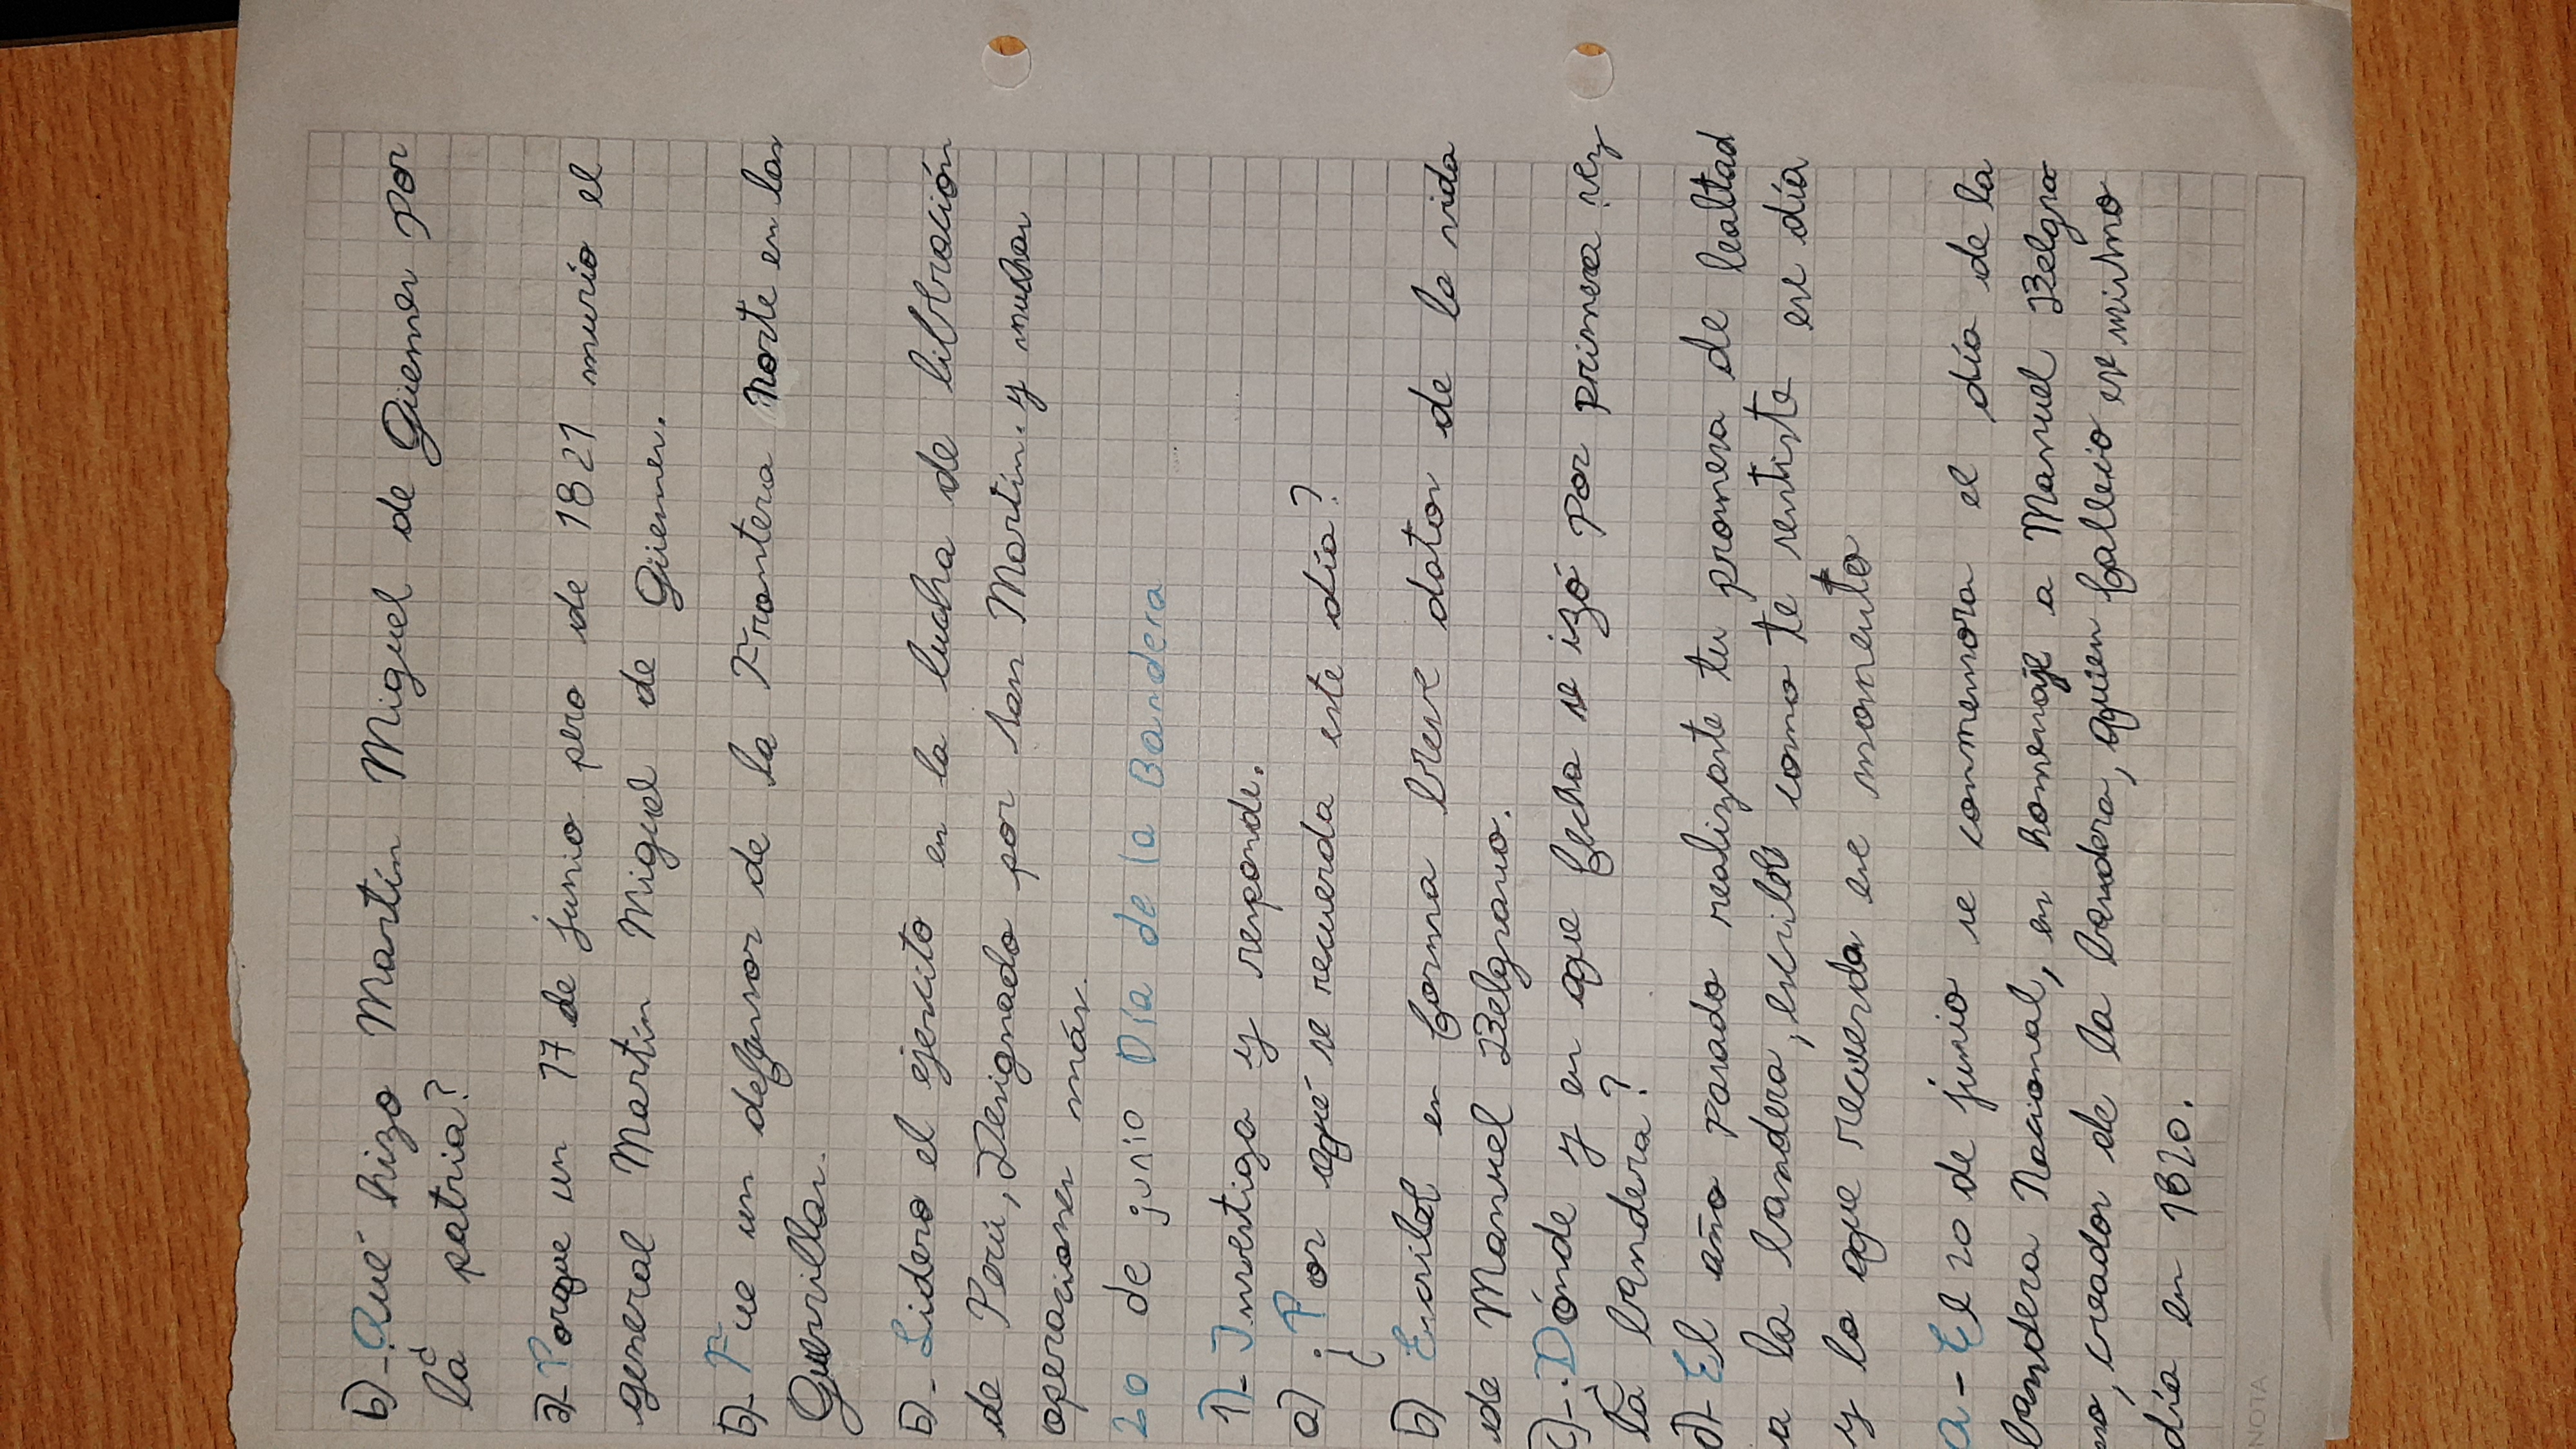 b)-¿Qué hizo Martín Miguel de Güemes por
la patria?
a)-Porque un 17 de junio pero de 1821 murio el
general Martín Miguel de Güemes.
b)-Fue un defensor de la Frontera Norte en las
Guerrillas.
b)-Lidero el ejercito en la lucha de libración
de Perú, Designado por san Martin. y muchas
operaciones más.
20 de junio Día de la Bandera
1)-Investiga y responde.
a) ¿Por qué se recuerda este día?
b) Escribí en forma breve datos de la vida
de Manuel Belgrano.
c)-¿Dónde y en que fecha se izó por primera vez
la bandera?
d)-El año pasado realizaste tu promesa de lealtad
a la bandera, escribí como te sentiste ese día
y lo que recuerda ese momento
a-El 20 de junio se conmemora el día de la
bandera Nacional, en homenaje a Manuel Belgra
no, creador de la bandera, quien fallecio ese mismo
día en 1820.
NOTA